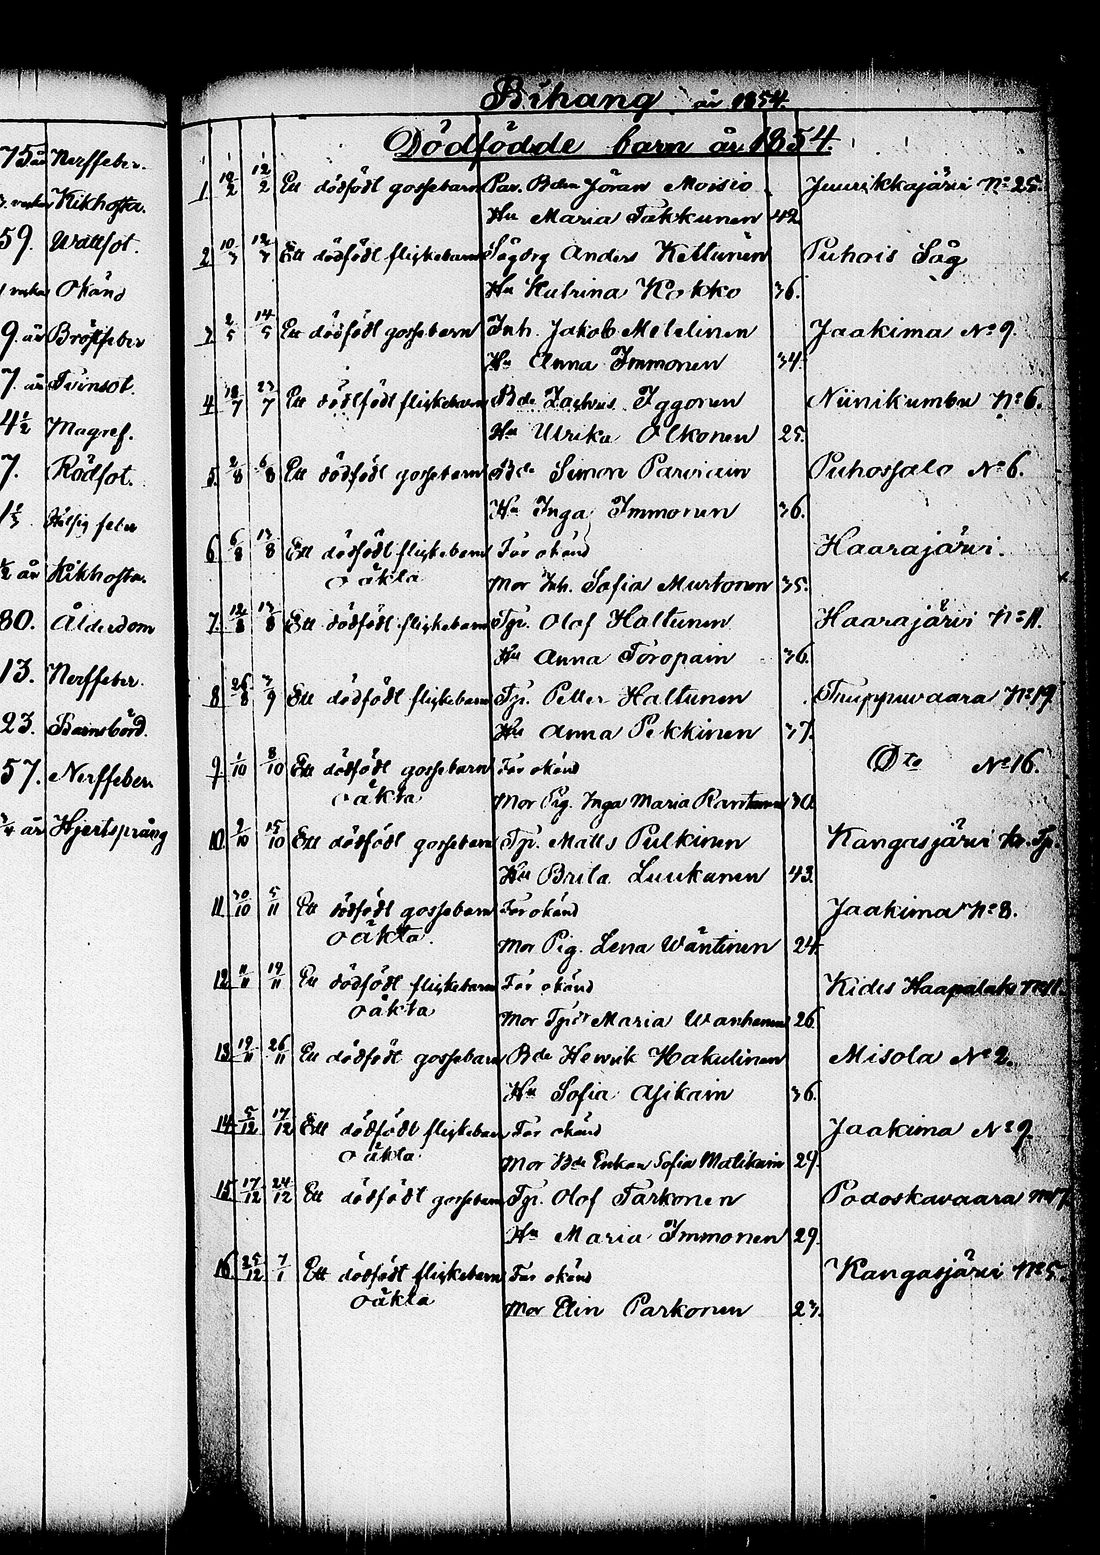 75 år Nerffeber.
Kikhosta.
59. Wattsot.
Okänd
9 år Bröstfeber
7. år Tvinsot.
4½ Magref.
7. Rödsot.
1⅓ Hitsig feber
½ år Kikhosta.
80. Ålderdom
13. Nerffeber.
23. Barnsbörd.
57. Nerffeber
¾ år Hjertsprång
Bihang år 1854.
Dödfödde barn år 1854.
1 10/2 12/2 Ett dödfödt gossebarn Bden Jöran Moisio Juurikkajärvi No 25.
Hu Maria Takkunen 42
2 10/3 12/3 Ett dödfödt flickebarn Anders Kettunen Puhois Såg
Hu Katrina Kokko 36.
3 2/5 14/5 Ett dödfödt gossebarn Inh. Jakob Melelinen Jaakima No 9.
Hu Anna Immonen 34.
4 18/7 23/7 Ett dödfödt flickebarn Bde Zachris Iggonen Niinikumbu No 6.
Hu Ulrika Olkonen 25.
5 2/8 6/8 Ett dödfödt gossebarn Bde Simon Parviain Puhossalo No 6.
Hu Inga Immonen 36.
6 6/8 13/8 Ett dödfödt flickebarn Far okänd Haarajärvi.
oäkta Mor Inh. Sofia Murtonen 35.
7. 12/8 13/8 Ett dödfödt flickebarn Tp. Olof Haltunen Haarajärvi No 11.
Hu Anna Toropain 36.
8 26/8 3/9 Ett dödfödt flickebarn Tp. Petter Haltunen Truppuvaara No 19.
Hu Anna Pekkinen 37.
9 1/10 8/10 Ett dödfödt gossebarn Far okänd Dto No 16.
oäkta Mor Pig. Inga Maria Rantanen 30.
10 9/10 15/10 Ett dödfödt gossebarn Tp. Matts Pulkinen Kangasjärvi Kr. Tp.
Hu Brita Luukanen 43.
11 30/10 5/11 Ett dödfödt gossebarn Far okänd Jaakima No 8.
oäkta. Mor Pig. Lena Wäntinen 24.
12 11/11 19/11 Ett dödfödt flickebarn Far okänd Kides Haapalaks No 11.
oäkta Mor Maria Wanhanen 26
13 19/11 26/11 Ett dödfödt gossebarn Bde Henrik Hakulinen Misola No 2.
Hu Sofia Asikain 36.
14 5/12 17/12 Ett dödfödt flickebarn Far okänd Jaakima No 9.
oäkta Mor Bde Enkan Sofia Matikain 29.
15 17/12 24/12 Ett dödfödt gossebarn Tp. Olof Tarkonen Podoskavaara No 17.
Hu Maria Immonen 29.
16 25/12 7/1 Ett dödfödt flickebarn Far okänd Kangasjärvi No 5.
oäkta Mor Elin Parkonen 23.